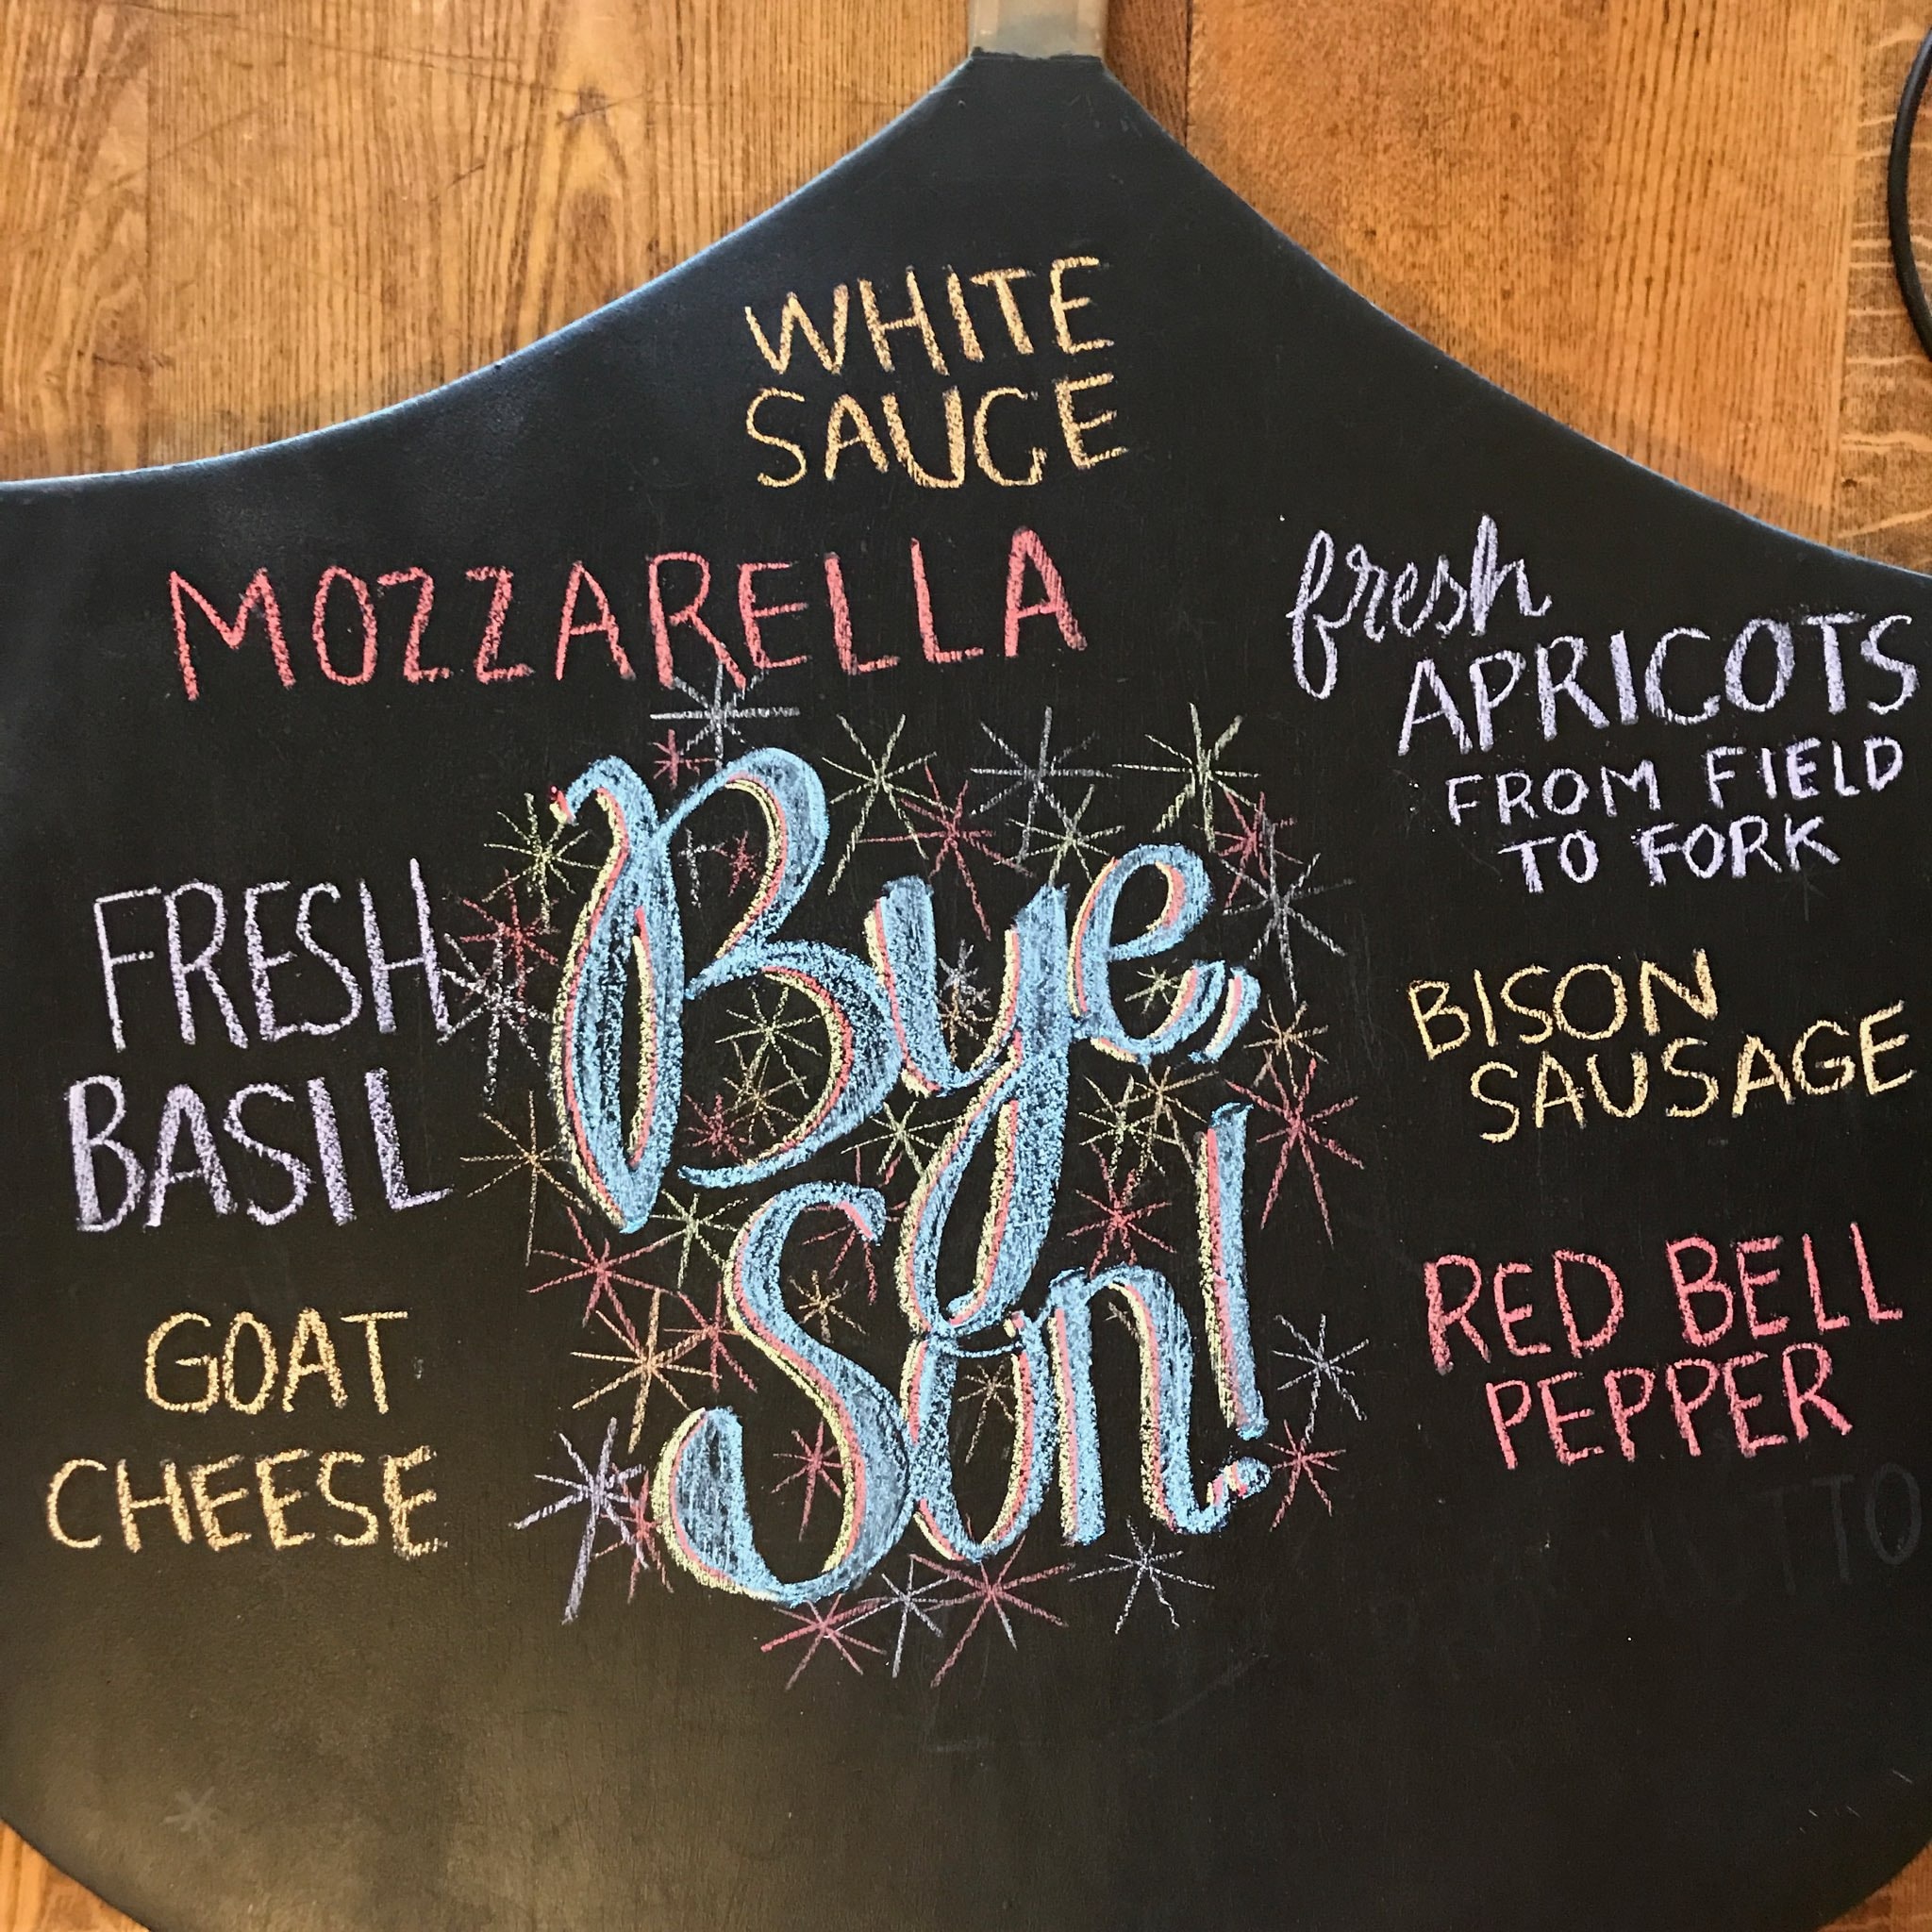 WHITE
SAUCE
MOZZARELLA
fresh
APRICOTS
FROM FIELD
TO FORK
FRESH
BASIL
Bye,
Son!
BISON
SAUSAGE
GOAT
CHEESE
RED BELL
PEPPER